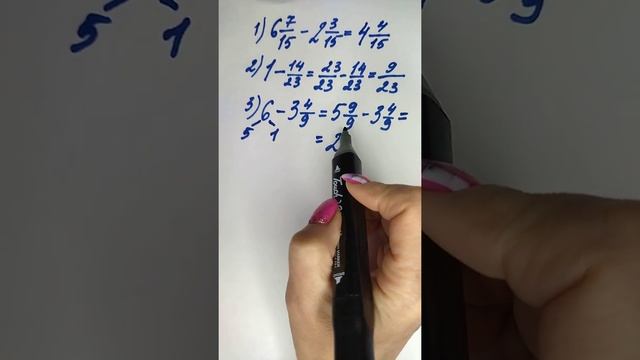 1) 6 7/15 - 2 3/15 = 4 4/15
2) 1 - 14/23 = 23/23 - 14/23 = 9/23
3) 6 - 3 4/9 = 5 9/9 - 3 4/9 =
5 1
= 2
Touch